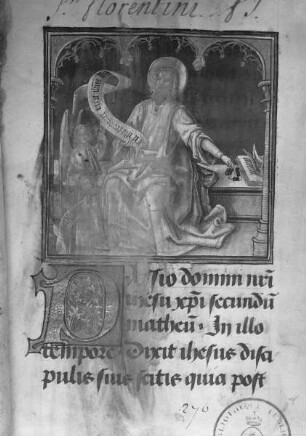 florentini
Passio domini nr̄i
ihesu xp̄i secundū
matheū. In illo
tempore Dixit ihesus disci
pulis suis scitis quia post
270